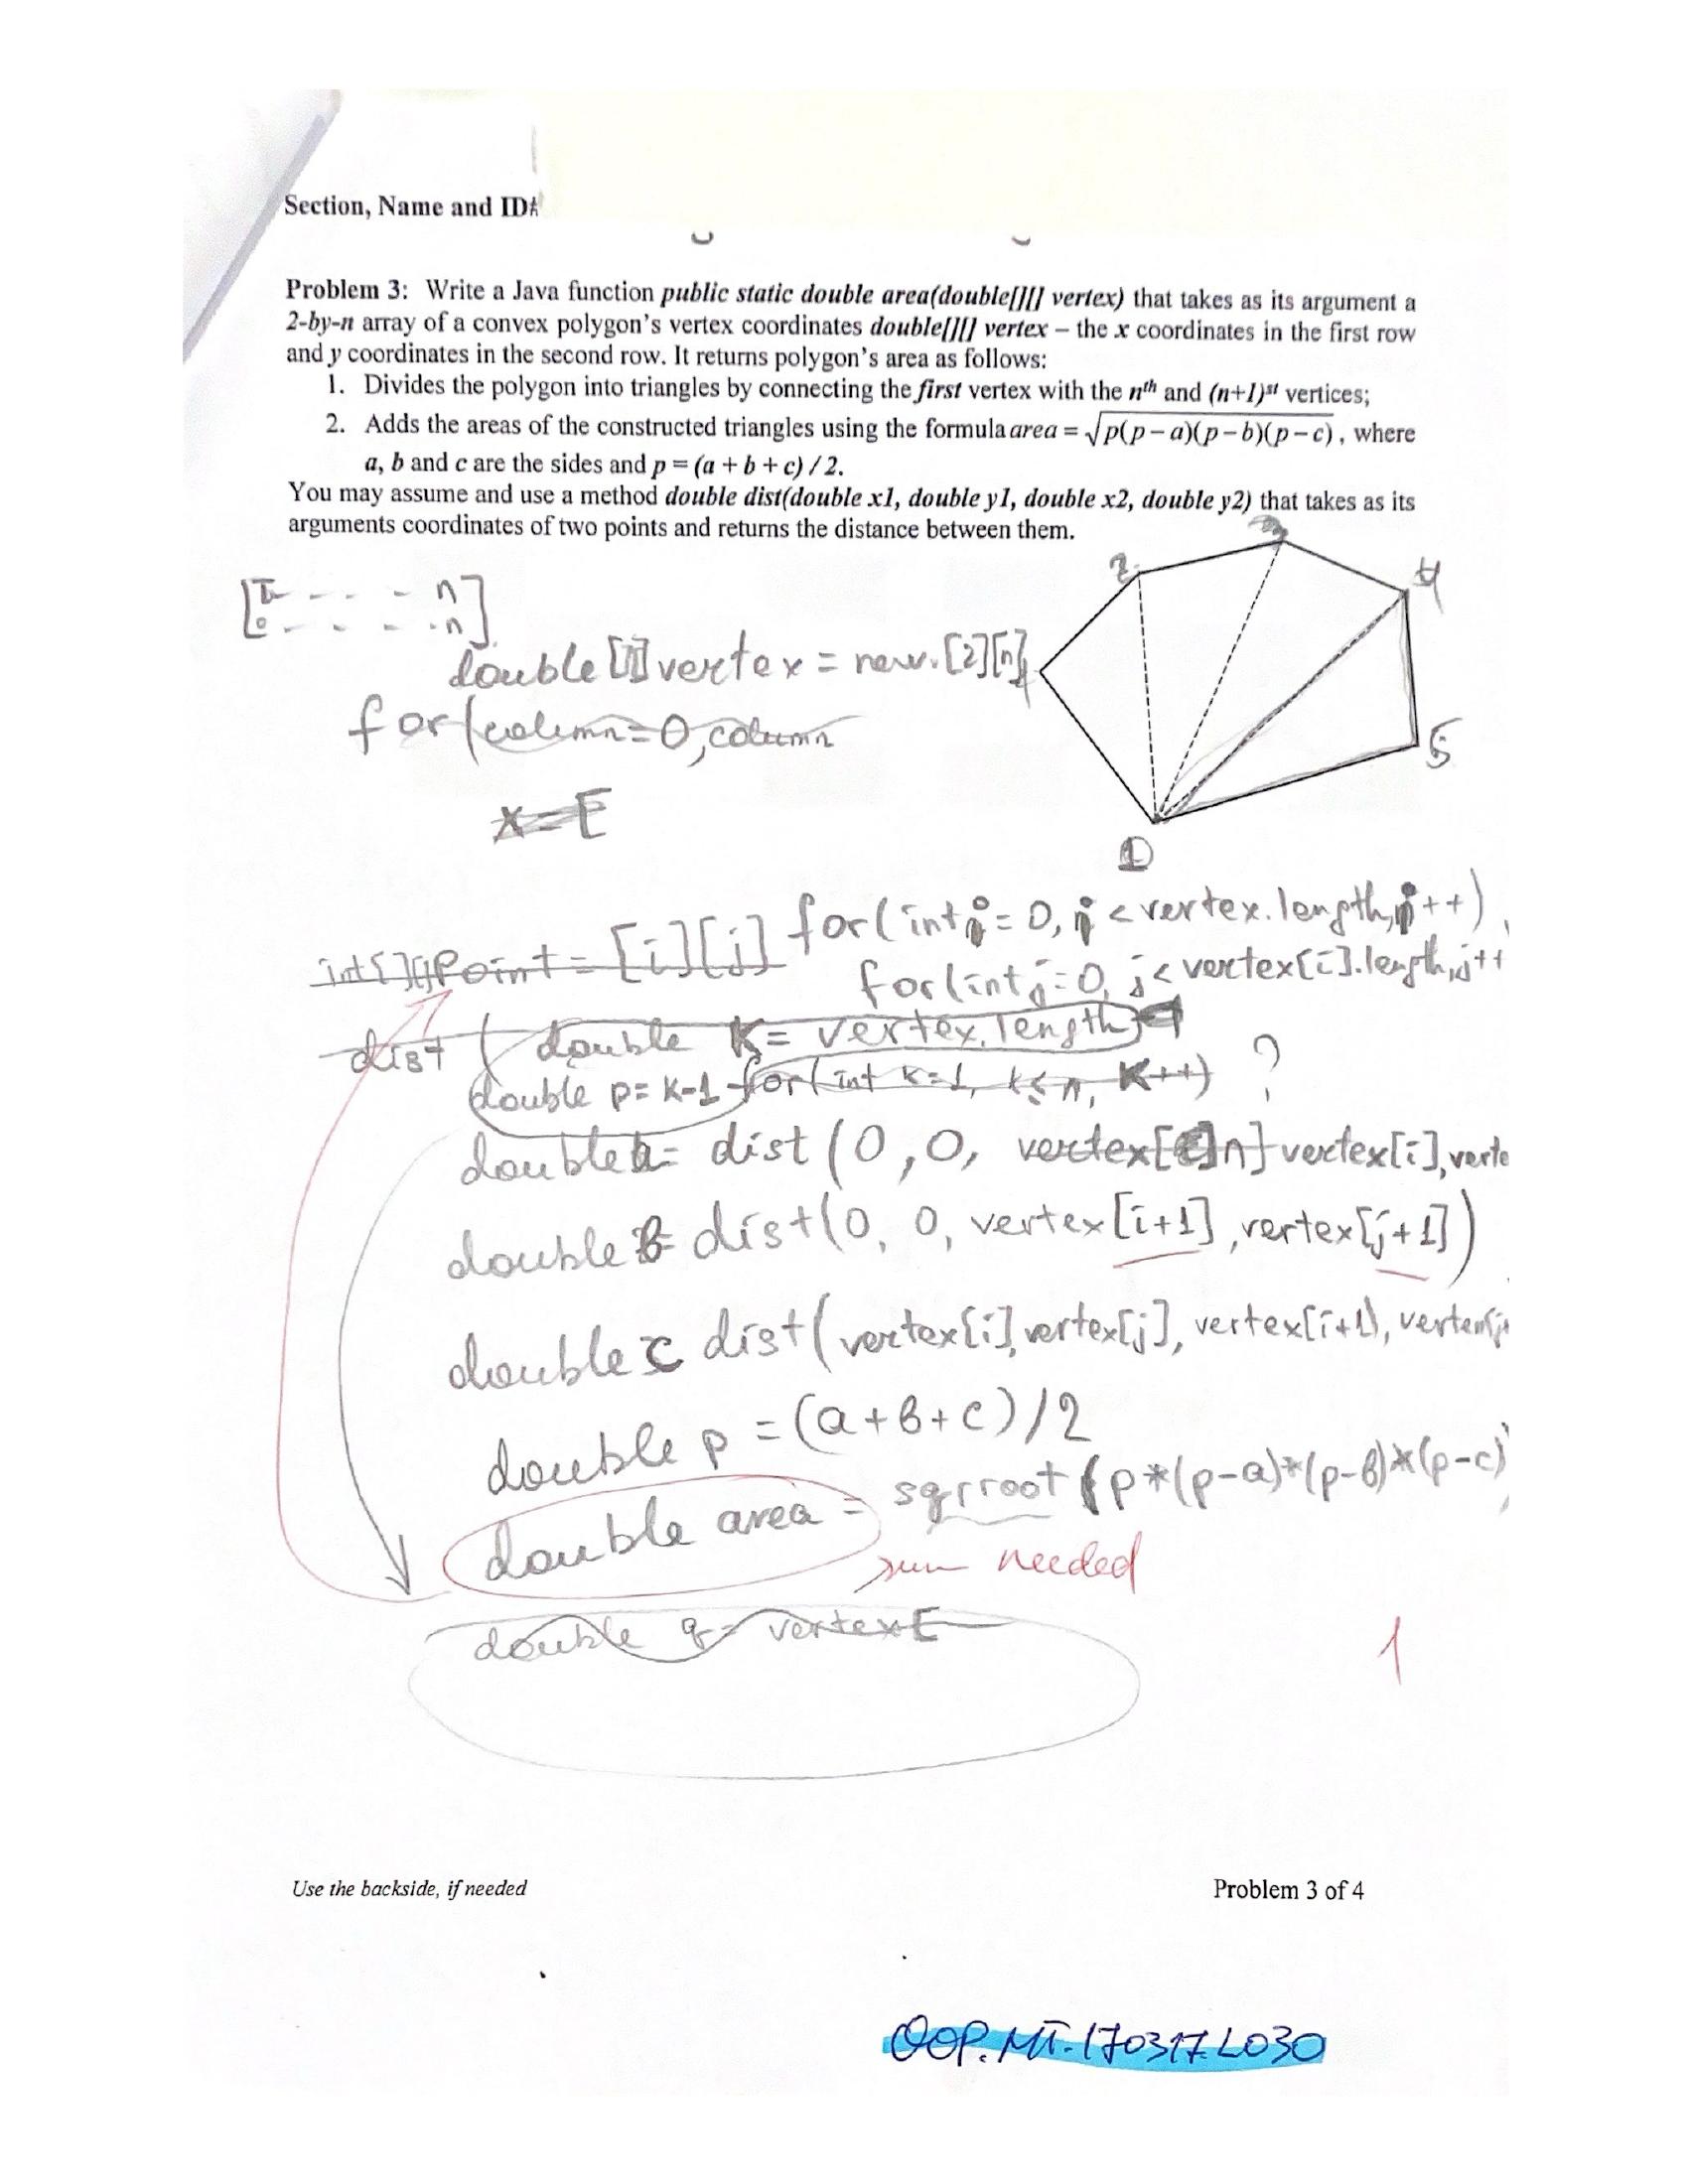 Section, Name and ID#
Problem 3: Write a Java function public static double area(double[][] vertex) that takes as its argument a
2-by-n array of a convex polygon's vertex coordinates double[][] vertex – the x coordinates in the first row
and y coordinates in the second row. It returns polygon's area as follows:
1. Divides the polygon into triangles by connecting the first vertex with the nth and (n+1)st vertices;
2. Adds the areas of the constructed triangles using the formula area = √p(p – a)(p – b)(p – c) , where
a, b and c are the sides and p = (a + b + c) / 2.
You may assume and use a method double dist(double x1, double y1, double x2, double y2) that takes as its
arguments coordinates of two points and returns the distance between them.
2 3 4
- - - n
0 - - - - n
double [][] vertex = new. [2][n]
for (column = 0, column
5
x = [
1
for (int i = 0, i < vertex.length, i++)
int[][] Point = [i][j]
for (int j = 0, j < vertex[i].length, j++
dist ( double K = vertex.length
double p = K-1 for (int k=1, k≤n, K++) ?
double a = dist (0, 0, vertex[n] vertex[i], verte
double b = dist (0, 0, vertex [i+1], vertex[j+1])
double c dist (vertex[i], vertex[j], vertex[i+1], vertex[j+
double p = (a+b+c)/2
double area = sqrroot (p*(p-a)*(p-b)*(p-c)
sum needed
double q = vertex[
1
Use the backside, if needed
Problem 3 of 4
OOP.MT.170317.L030